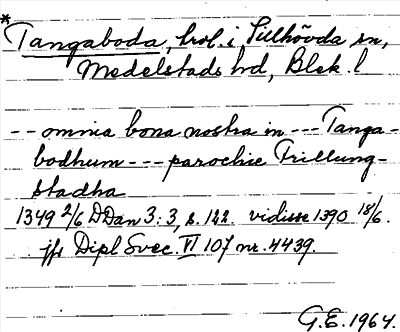 *Tangaboda, hrl. i Tillhövda sn,
Medelstads hd, Blek. l
-- omnia bona nostra in --- Tanga-
bodhum --- parochie Trillung-
stadha
1349 2/6 DDan 3:3, s. 122. vidisse 1390 18/6.
jfr Dipl Svec. VI 107 nr. 4439.
G.E. 1964.